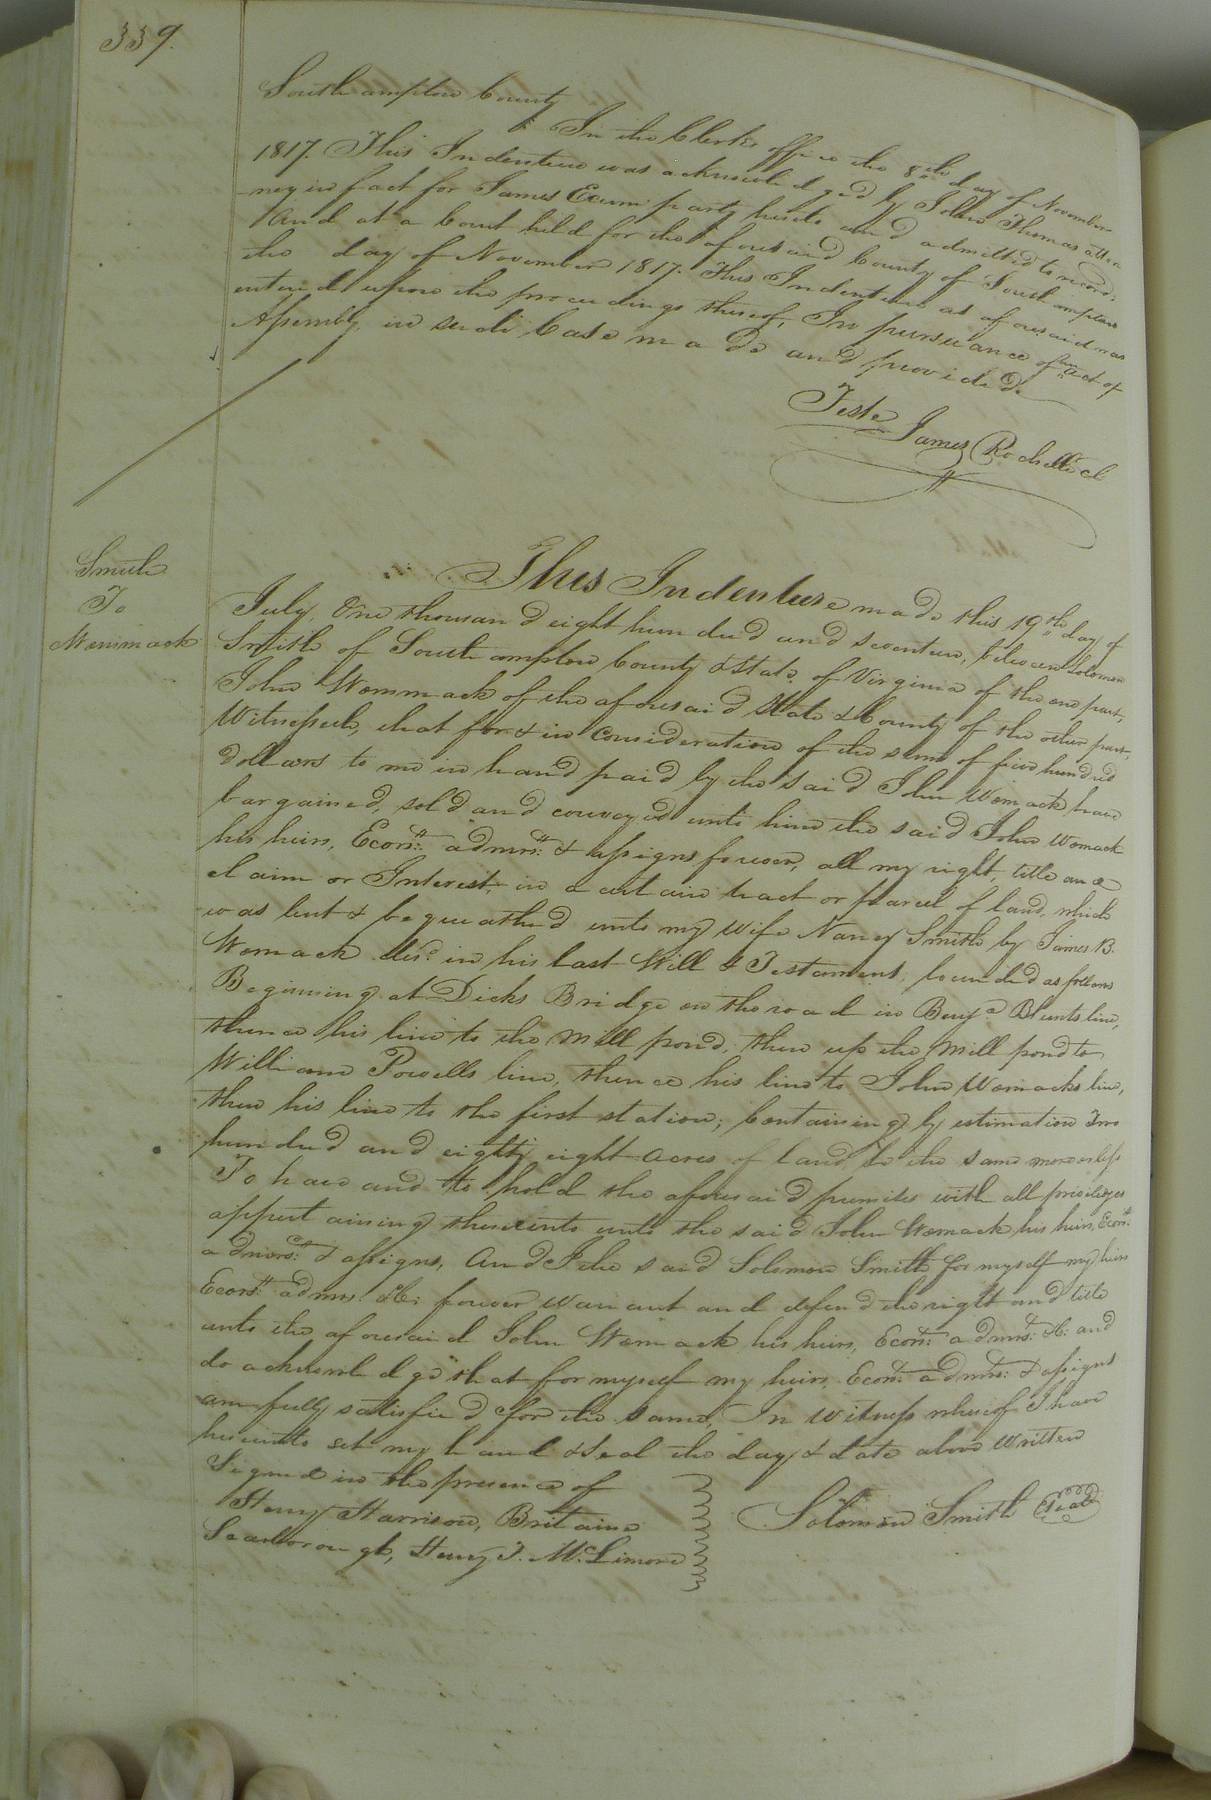 339.
Southampton County
In the Clerks office the 8th day of November
1817. This Indenture was acknowledged by John Thomas attor
ney in fact for James Exum party hereto and admitted to record:
And at a Court held for the aforesaid County of Southampton
the day of November 1817. This Indenture as aforesaid was
entered upon the proceedings thereof, In pursuance of an act of
Assembly in such Case made and provided.
Teste James Rochelle cl
Smith
To
Wommack
This Indenture made this 19th day of
July, One thousand eight hundred and seventeen, between Solomon
Smith of Southampton County & State of Virginia of the one part,
John Wommack of the aforesaid State & County of the other part,
Witnesseth, that for & in Consideration of the sum of five hundred
dollars to me in hand paid by the said John Womack have
bargained, sold and conveyed unto him the said John Womack
his heirs, Ecors: admrs: & assigns forever, all my right, title and
claim or Interest, in a certain tract or parcel of land, which
was lent & bequeathed unto my wife Nancy Smith by James B.
Womack decd. in his last Will & Testament, bounded as follows
Begining at Dicks Bridge on the road in Benja Blunts line,
thence his line to the Mill pond, then up the Mill pond to
William Powells line, thence his line to John Womacks line,
then his line to the first station; Containing by estimation Two
hundred and eighty eight acres of land be the same more or less
To have and to hold the aforesaid premises with all priviledges
appertaining thereunto unto the said John Womack his heirs, Ecors:
admors: & assigns, And I the said Solomon Smith for myself my heirs
Ecors: admrs &C: forever warrant and defend the right and title
unto the aforesaid John Womack his heirs, Ecors: admrs: &C: and
do acknowledge that for myself my heirs, Ecors: admrs: & assigns
am fully satisfied for the same, In witness whereof I have
hereunto set my hand & seal the day & date above written
Signed in the presence of
Henry Harrison, Britain
Scarborough, Henry J. McLimore
Solomon Smith Seal